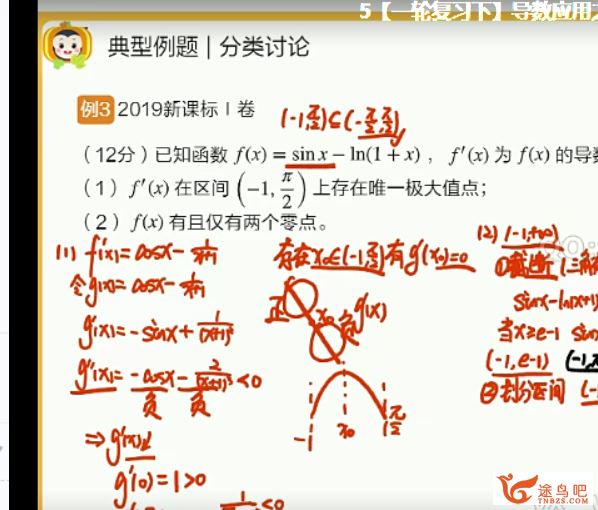 5【一轮复习下】导数应用
典型例题 | 分类讨论
例3 2019新课标Ⅰ卷
(-1,π/2)⊆(-π/2,π/2)
（12分）已知函数 f(x) = sin x − ln(1 + x) ， f′(x) 为 f(x) 的导
（1）f′(x) 在区间 (−1, π/2) 上存在唯一极大值点；
（2）f(x) 有且仅有两个零点。
(1) f'(x)=cosx-
令g(x)=cosx-
g'(x)=-sinx+1/(x+1)²
g''(x)=-cosx-2/(x+1)³<0
负 负
⇒g'(x)↓
g'(0)=1>0
<0
存在x₀∈(-1,π/2)有g'(x₀)=0
正 x₀ 负 g'(x)
-1 x₀ π/2
(2) (-1,+∞)
①截断(三角
sinx-ln(x+1)
当x≥e-1 sin
(-1,e-1) (-1,
②划分区间 (-1
途鸟吧
TNBZS.COM